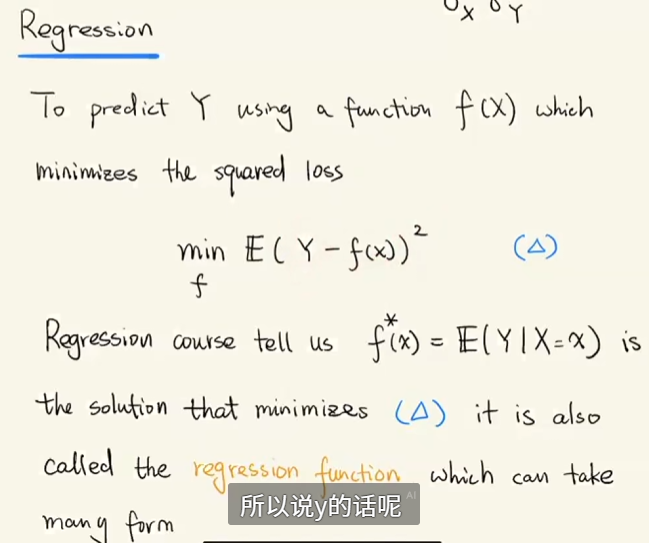 σ_X σ_Y
Regression
To predict Y using a function f(X) which
minimizes the squared loss
min E(Y - f(x))² (△)
f
Regression course tell us f*(x) = E(Y|X=x) is
the solution that minimizes (△) it is also
called the regression function which can take
所以说y的话呢 AI
many form